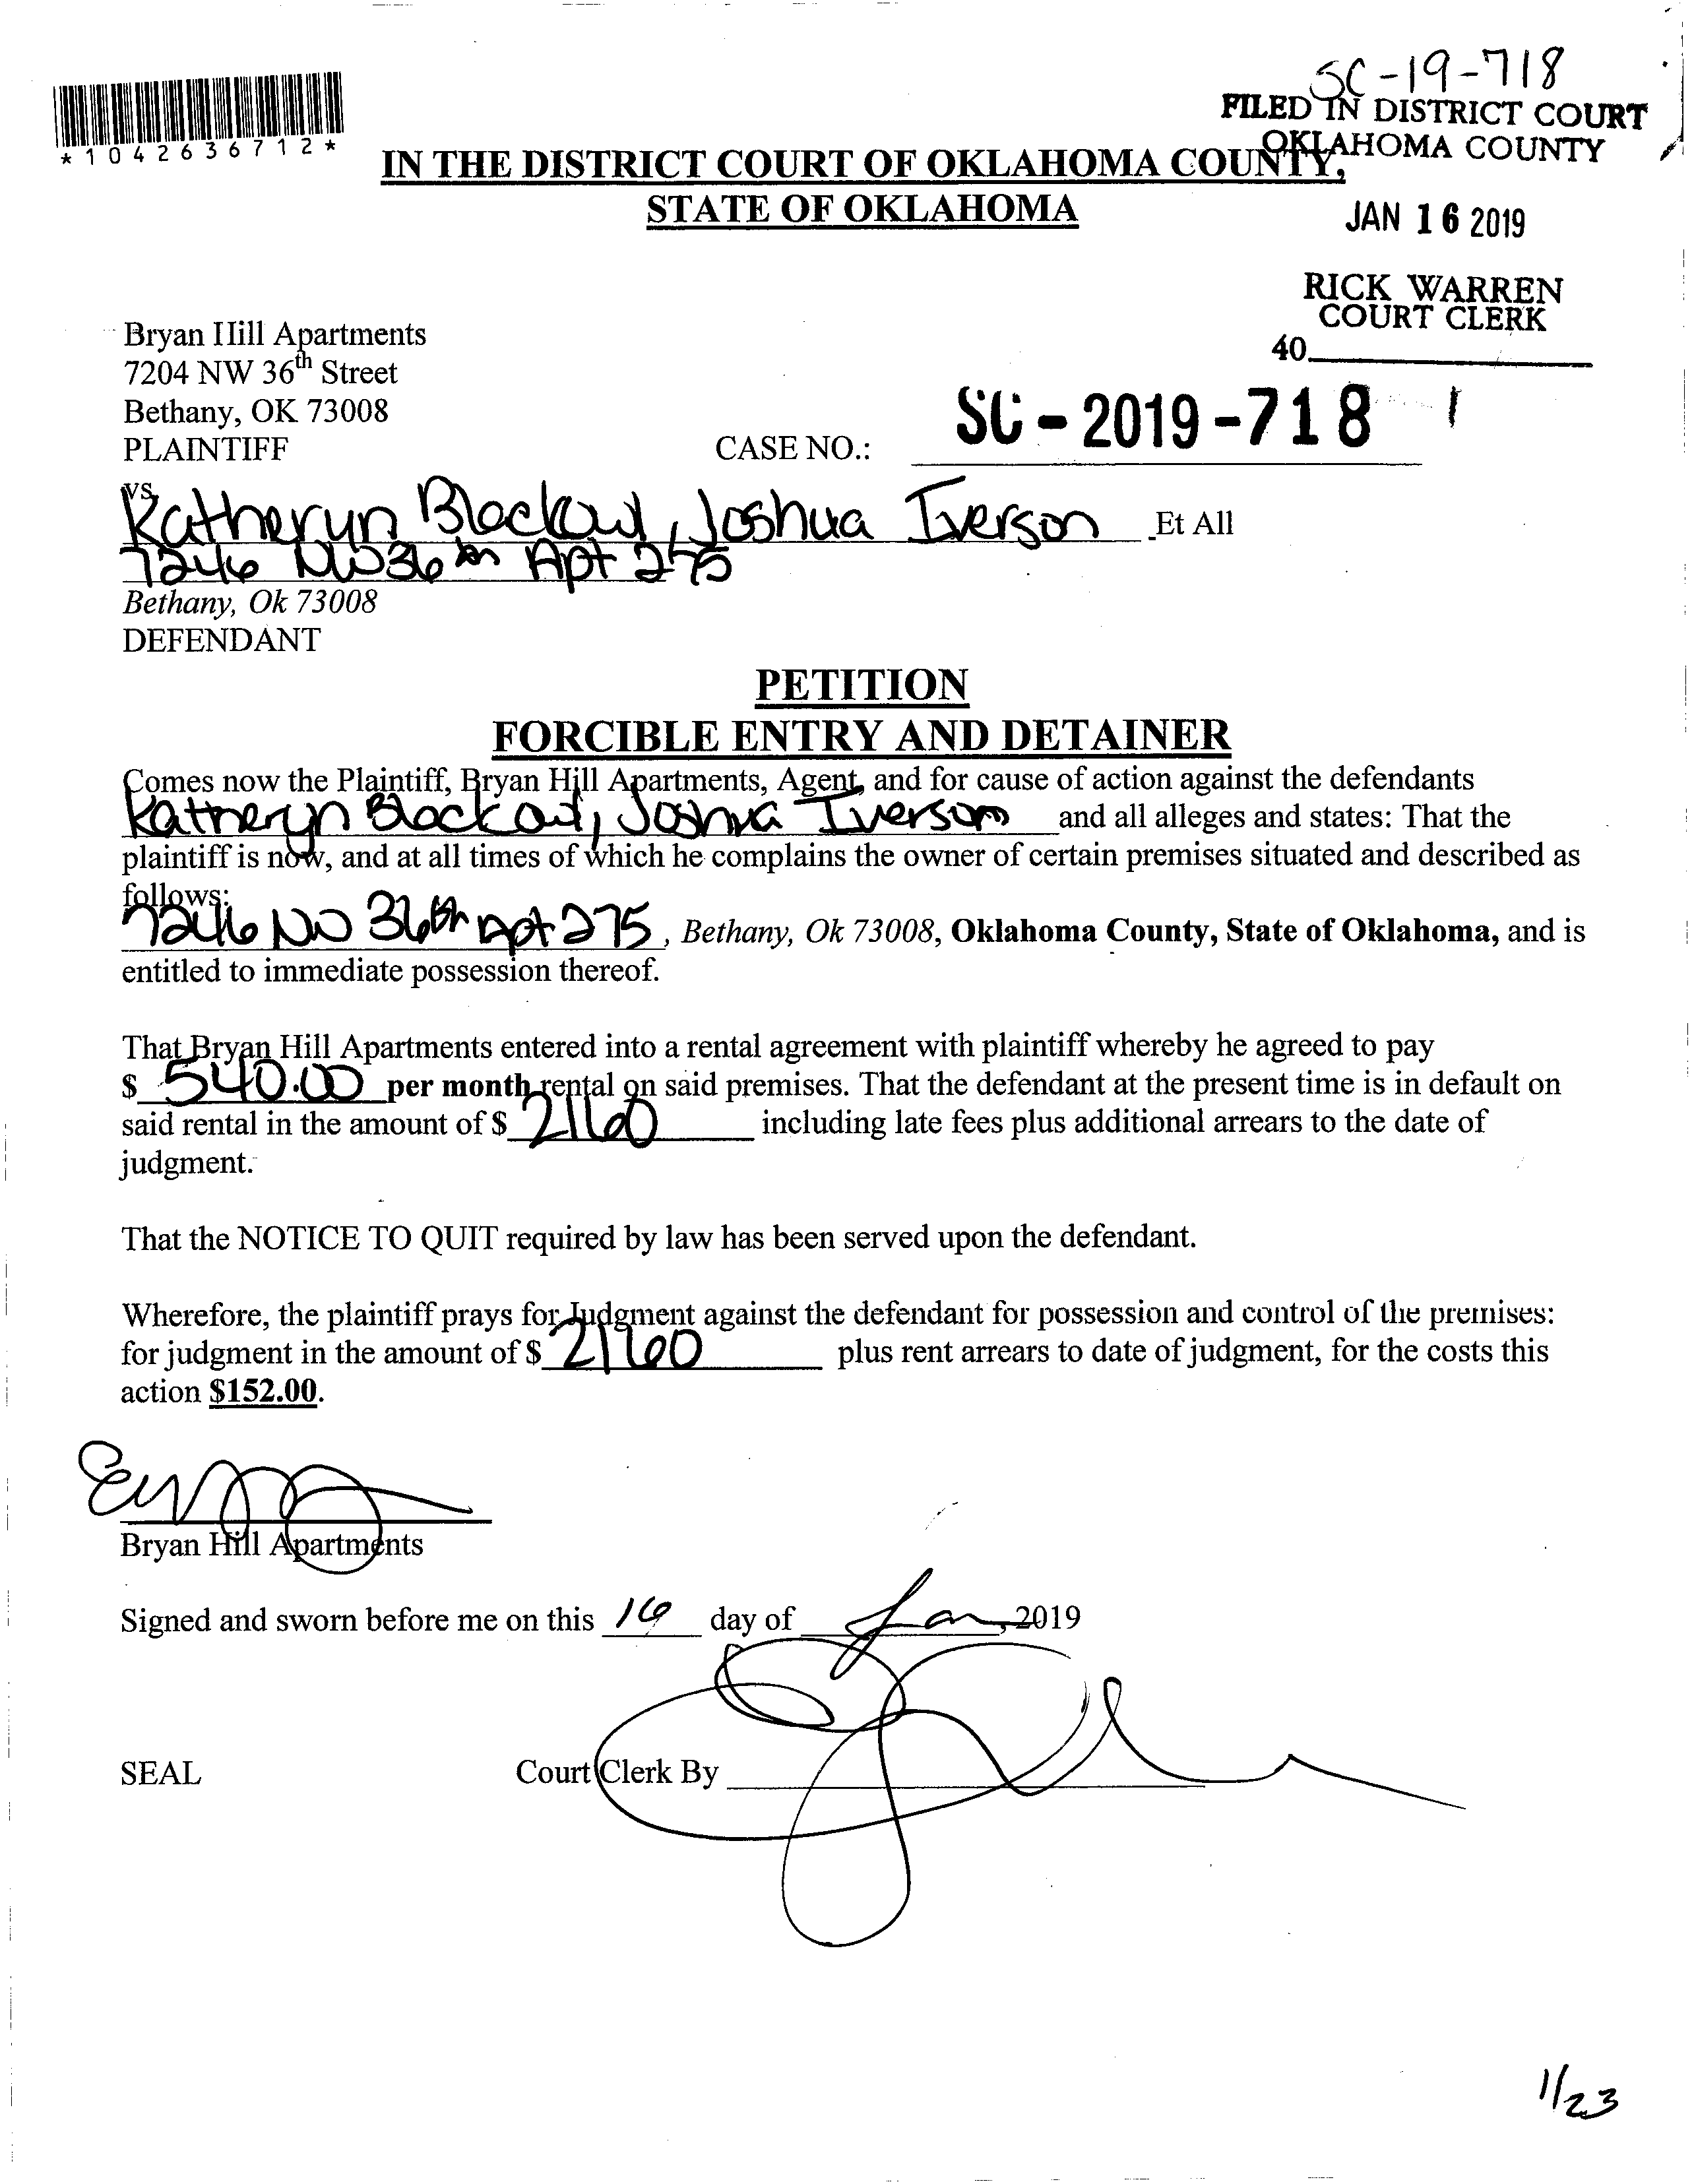 SC-19-718
FILED IN DISTRICT COURT
OKLAHOMA COUNTY
*1042636712*
IN THE DISTRICT COURT OF OKLAHOMA COUNTY,
STATE OF OKLAHOMA
JAN 16 2019
RICK WARREN
COURT CLERK
40
Bryan Hill Apartments
7204 NW 36th Street
Bethany, OK 73008
PLAINTIFF
CASE NO.: SC-2019-718
vs.
Katheryn Joshua Iverson Et All
7246 NW 36th Apt 275
Bethany, Ok 73008
DEFENDANT
PETITION
FORCIBLE ENTRY AND DETAINER
Comes now the Plaintiff, Bryan Hill Apartments, Agent, and for cause of action against the defendants
Katheryn Joshua Iverson and all alleges and states: That the
plaintiff is now, and at all times of which he complains the owner of certain premises situated and described as
follows:
7246 NW 36th Apt 275, Bethany, Ok 73008, Oklahoma County, State of Oklahoma, and is
entitled to immediate possession thereof.
That Bryan Hill Apartments entered into a rental agreement with plaintiff whereby he agreed to pay
$ 540.00 per month rental on said premises. That the defendant at the present time is in default on
said rental in the amount of $ 2160 including late fees plus additional arrears to the date of
judgment.
That the NOTICE TO QUIT required by law has been served upon the defendant.
Wherefore, the plaintiff prays for Judgment against the defendant for possession and control of the premises:
for judgment in the amount of $ 2160 plus rent arrears to date of judgment, for the costs this
action $152.00.
Bryan Hill Apartments
Signed and sworn before me on this 16 day of Jan, 2019
SEAL Court Clerk By
1/23